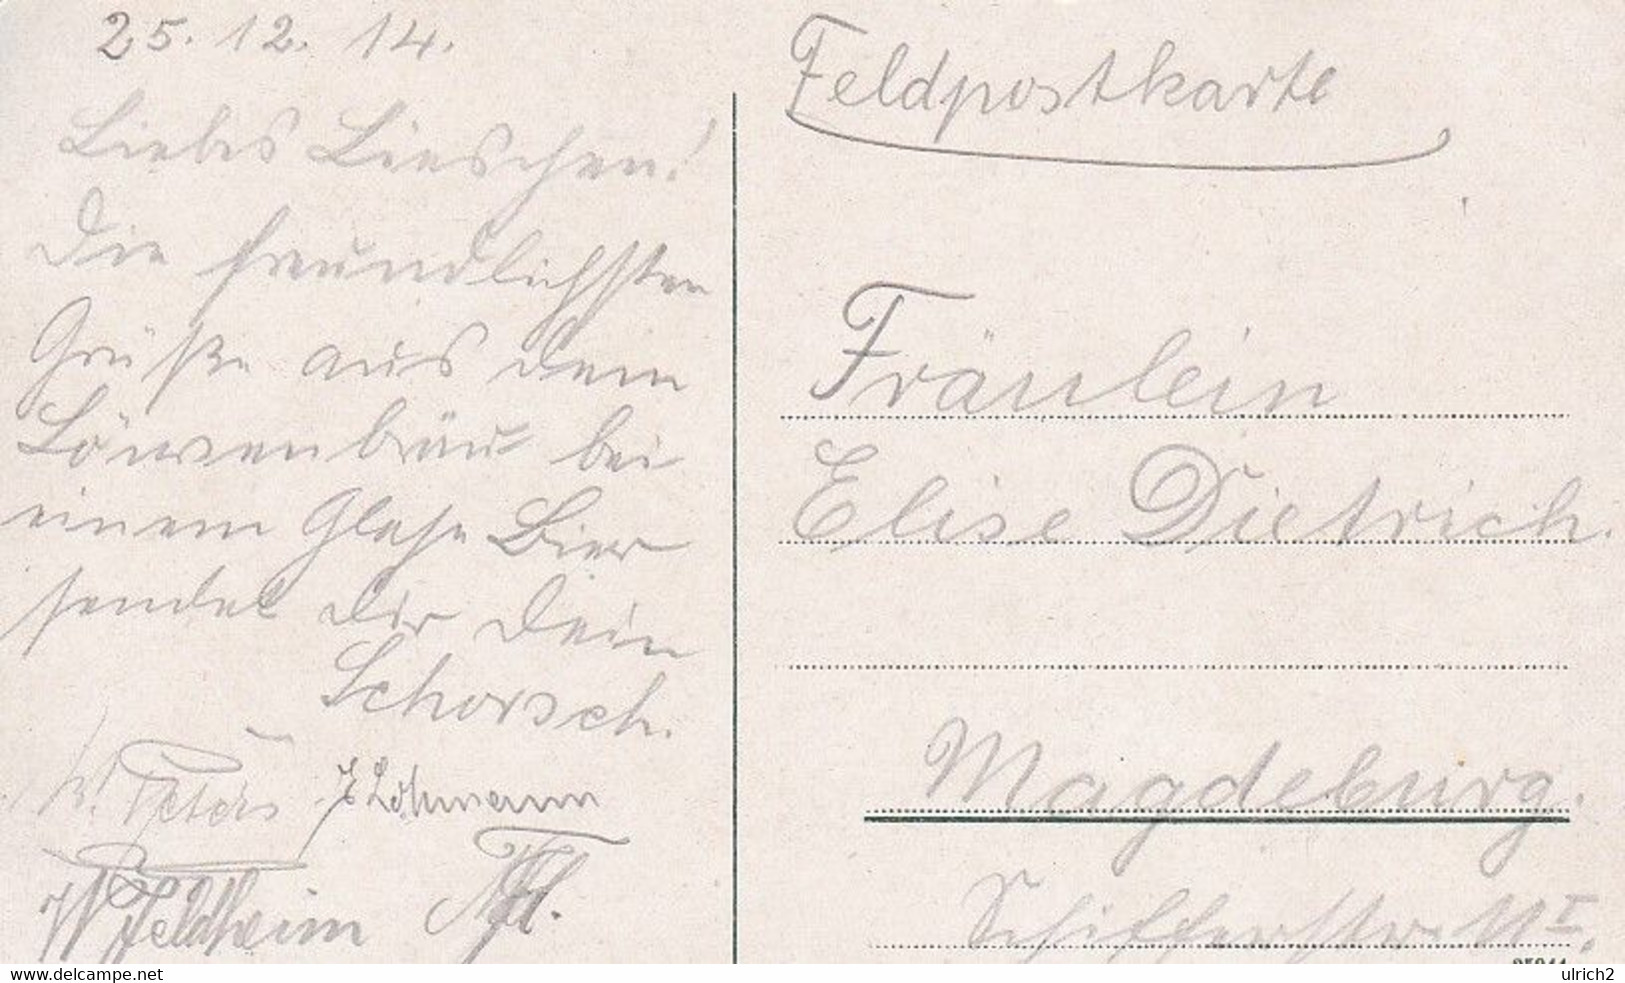 25. 12. 14.
Liebes Lieschen!
Die freundlichsten
Grüße aus dem
Löwenbräu bei
einem Glase Bier
sendet Dir Dein
Schorsch.
Peters Lohmann
W Feldheim
Feldpostkarte
Fräulein
Elise Dietrich.
Magdeburg.
Schifferstr. 11 I.
delcampe.net
ulrich2